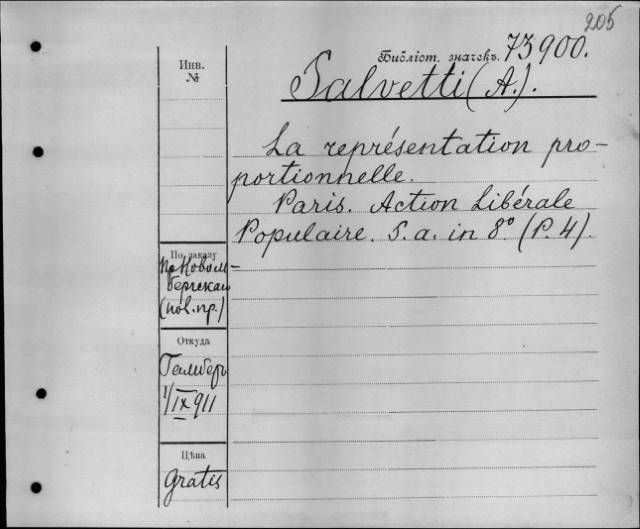 205
Библіот. значекъ. 73900.
Инв.
№
Salvetti (A.).
La représentation pro-
portionnelle.
Paris. Action Libérale
Populaire. S. a. in 8.° (P. 4).
По заказу
Новом-
бергскаго
(пов. пр.)
Откуда
Гамберъ
1/IX 911
Цѣна
gratis